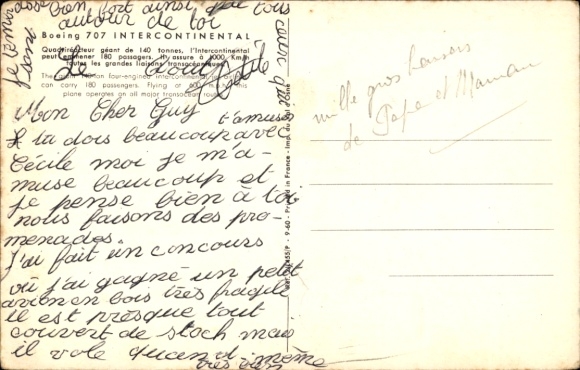 Boeing 707 INTERCONTINENTAL
Quadriréacteur géant de 140 tonnes, l'Intercontinental
peut emmener 180 passagers. Il assure à 1000 Km/h
toutes les grandes liaisons transocéaniques.
can carry 180 passengers. Flying at 600
plane operates on all major transocean routes.
Mon Cher Guy
tu dois beaucoup t'amuser avec
Cécile moi je m'a-
muse beaucoup et
je pense bien à toi
nous faisons des pro-
menades.
J'ai fait un concours
où j'ai gagné un petit
avion en bois très fragile
il est presque tout
couvert de scotch mais
il vole quand même
très bien
je t'embrasse bien fort ainsi que tous
autour de toi
mille gros baisers
de Papa et Maman
Printed in France - Imp.
9-60